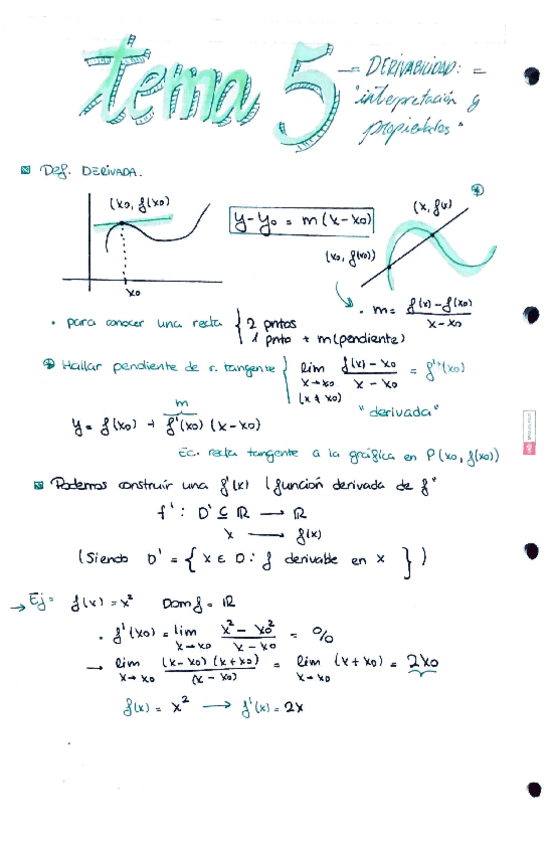 tema 5
- DERIVABILIDAD: -
"interpretación y
propiedades"
Def. DERIVADA.
(x₀, f(x₀))
x₀
y-y₀ = m(x-x₀)
(x, f(x))
(x₀, f(x₀))
· m= f(x)-f(x₀) / x-x₀
· para conocer una recta { 2 pntos
1 pnto + m(pendiente)
* Hallar pendiente de r. tangente { lim x→x₀ (x≠x₀) f(x)-x₀ / x-x₀ = f'(x₀)
"derivada"
m
y= f(x₀) + f'(x₀) (x-x₀)
Ec. recta tangente a la gráfica en P(x₀, f(x₀))
Podemos construir una f'(x) (función derivada de f"
f': D' ⊆ ℝ → ℝ
x → f(x)
(Siendo D' = { x ∈ D: f derivable en x })
→ Ej= f(x) = x² Dom f = ℝ
· f'(x₀) = lim x→x₀ x²-x₀² / x-x₀ = 0/0
→ lim x→x₀ (x-x₀)(x+x₀) / (x-x₀) = lim x→x₀ (x+x₀) = 2x₀
f(x) = x² → f'(x) = 2x